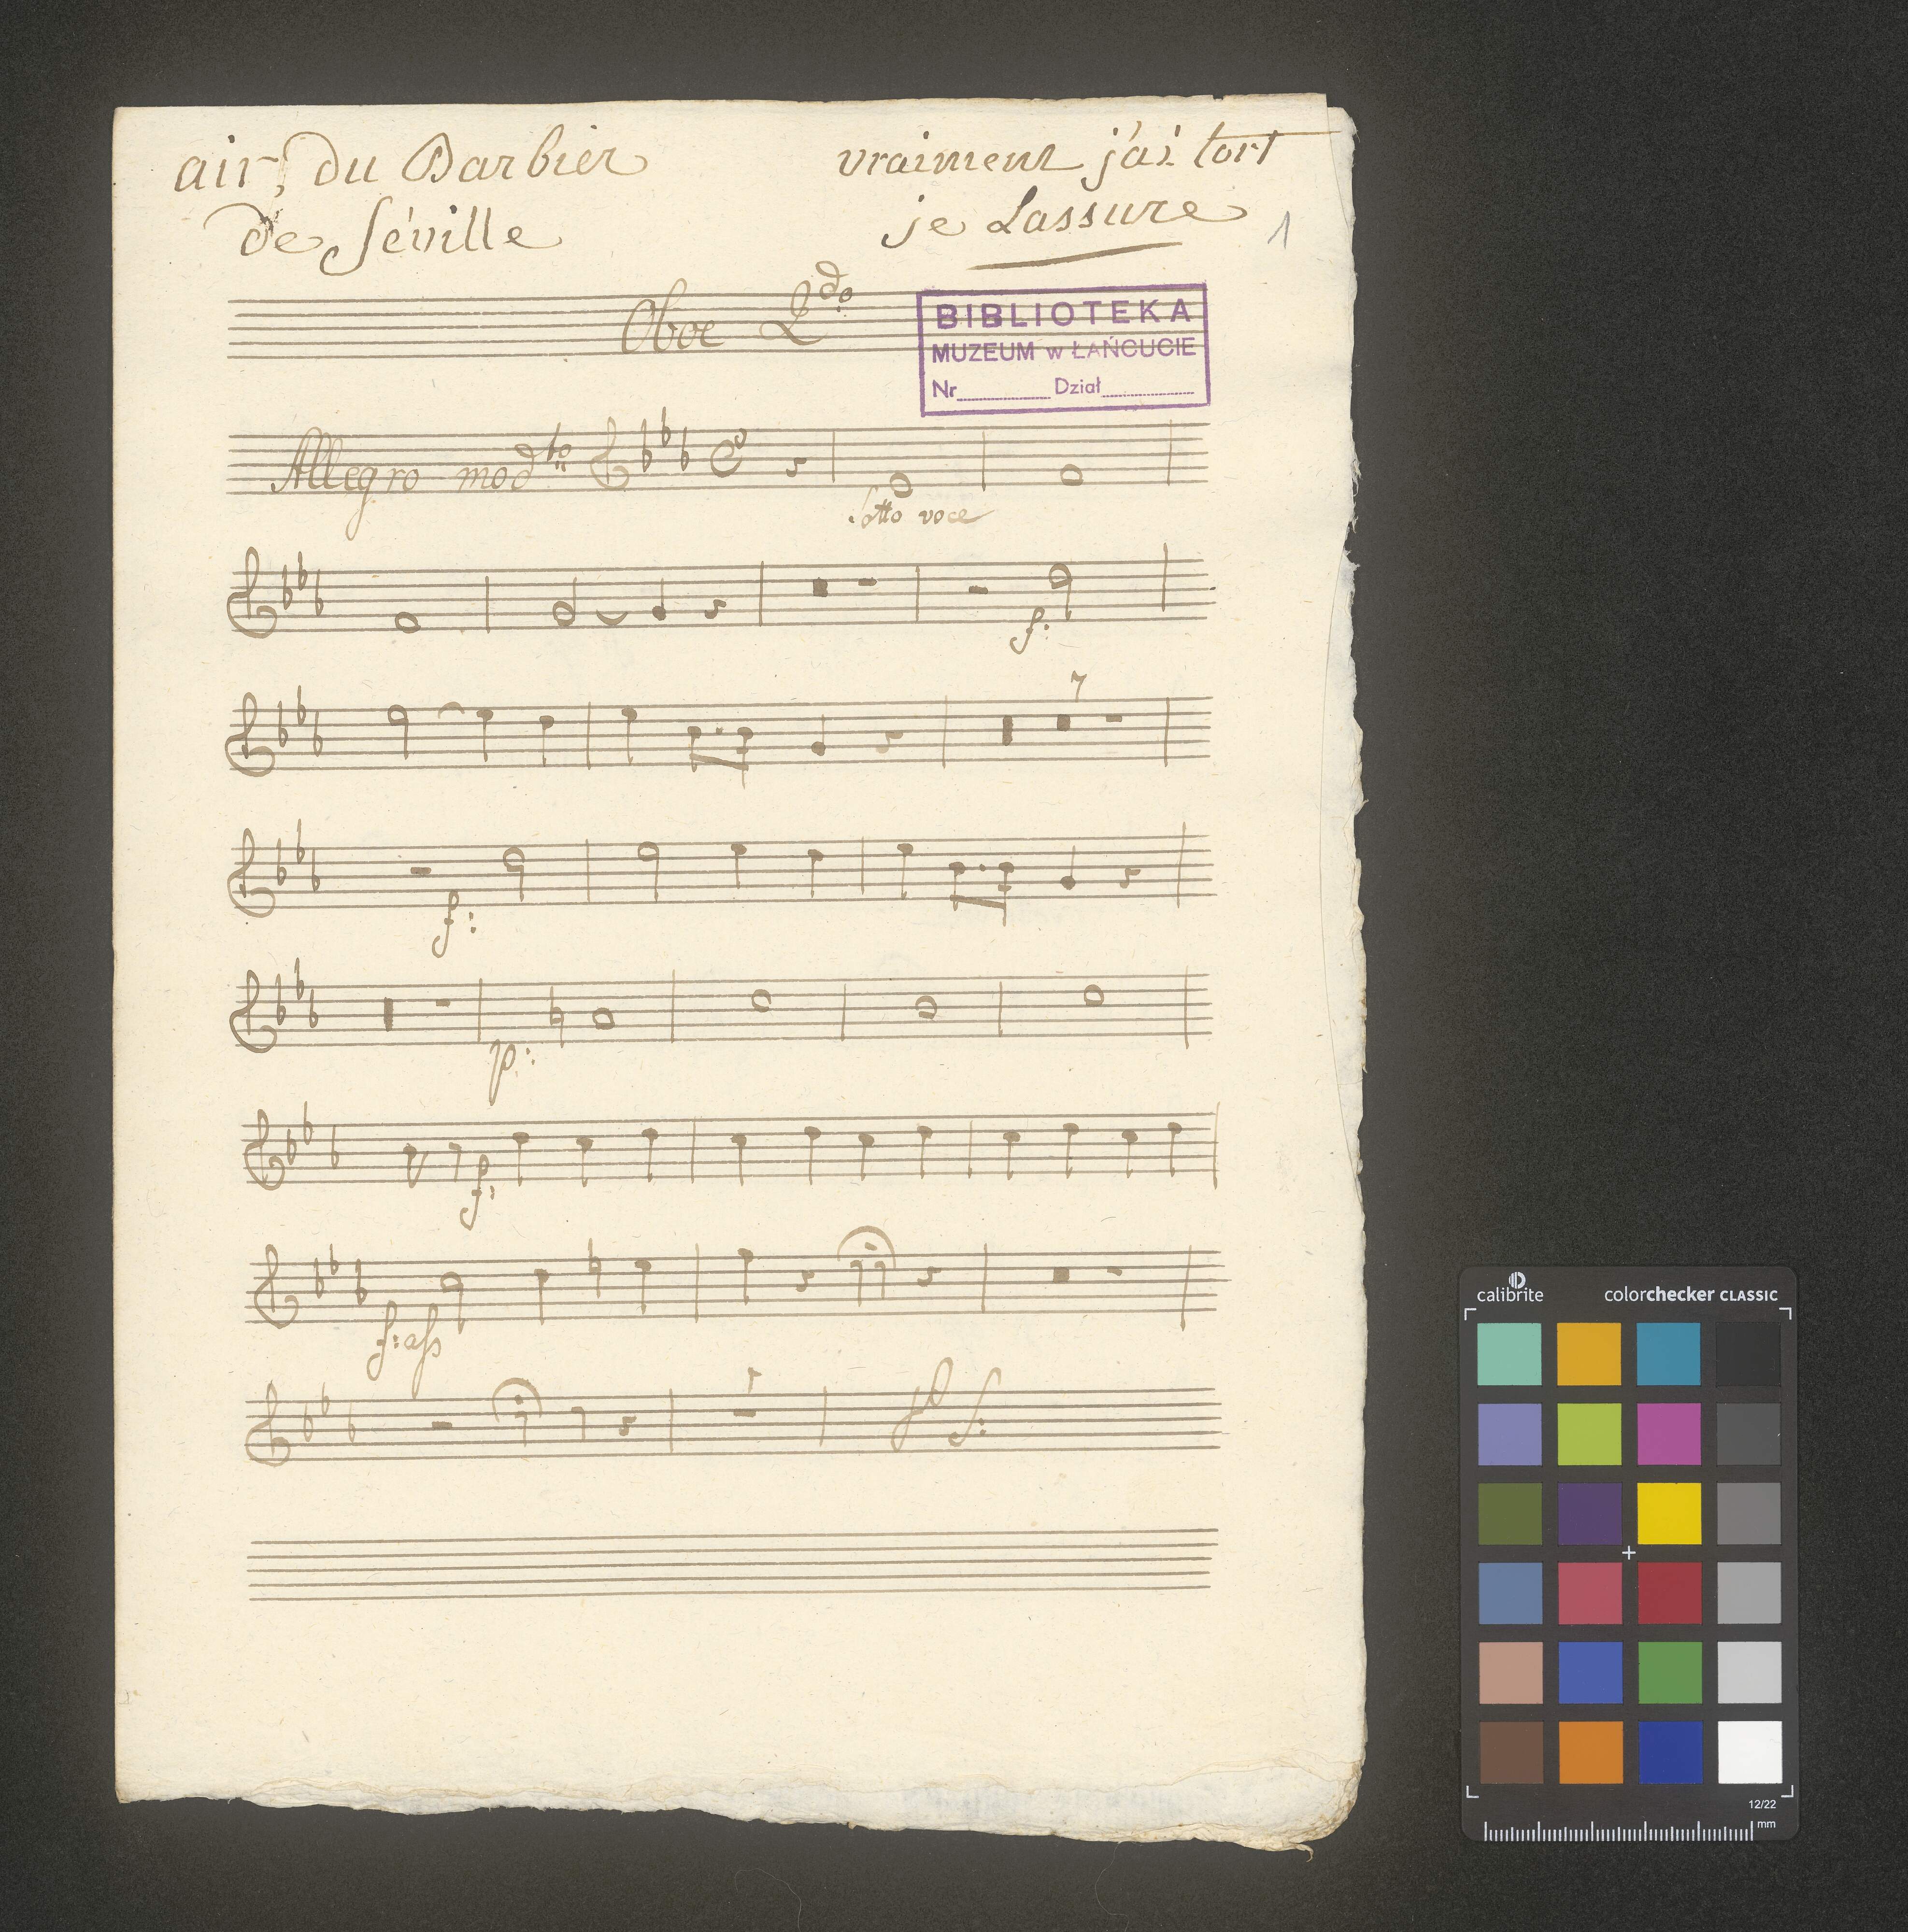 air, du Barbier
de Séville
vraiment j'ai tort
je Lassure
1
Oboe 2do
BIBLIOTEKA
MUZEUM w ŁAŃCUCIE
Nr Dział
Allegro modto
Sotto voce
f:
7
f:
p:
f:
f: ass
calibrite
colorchecker CLASSIC
12/22
mm